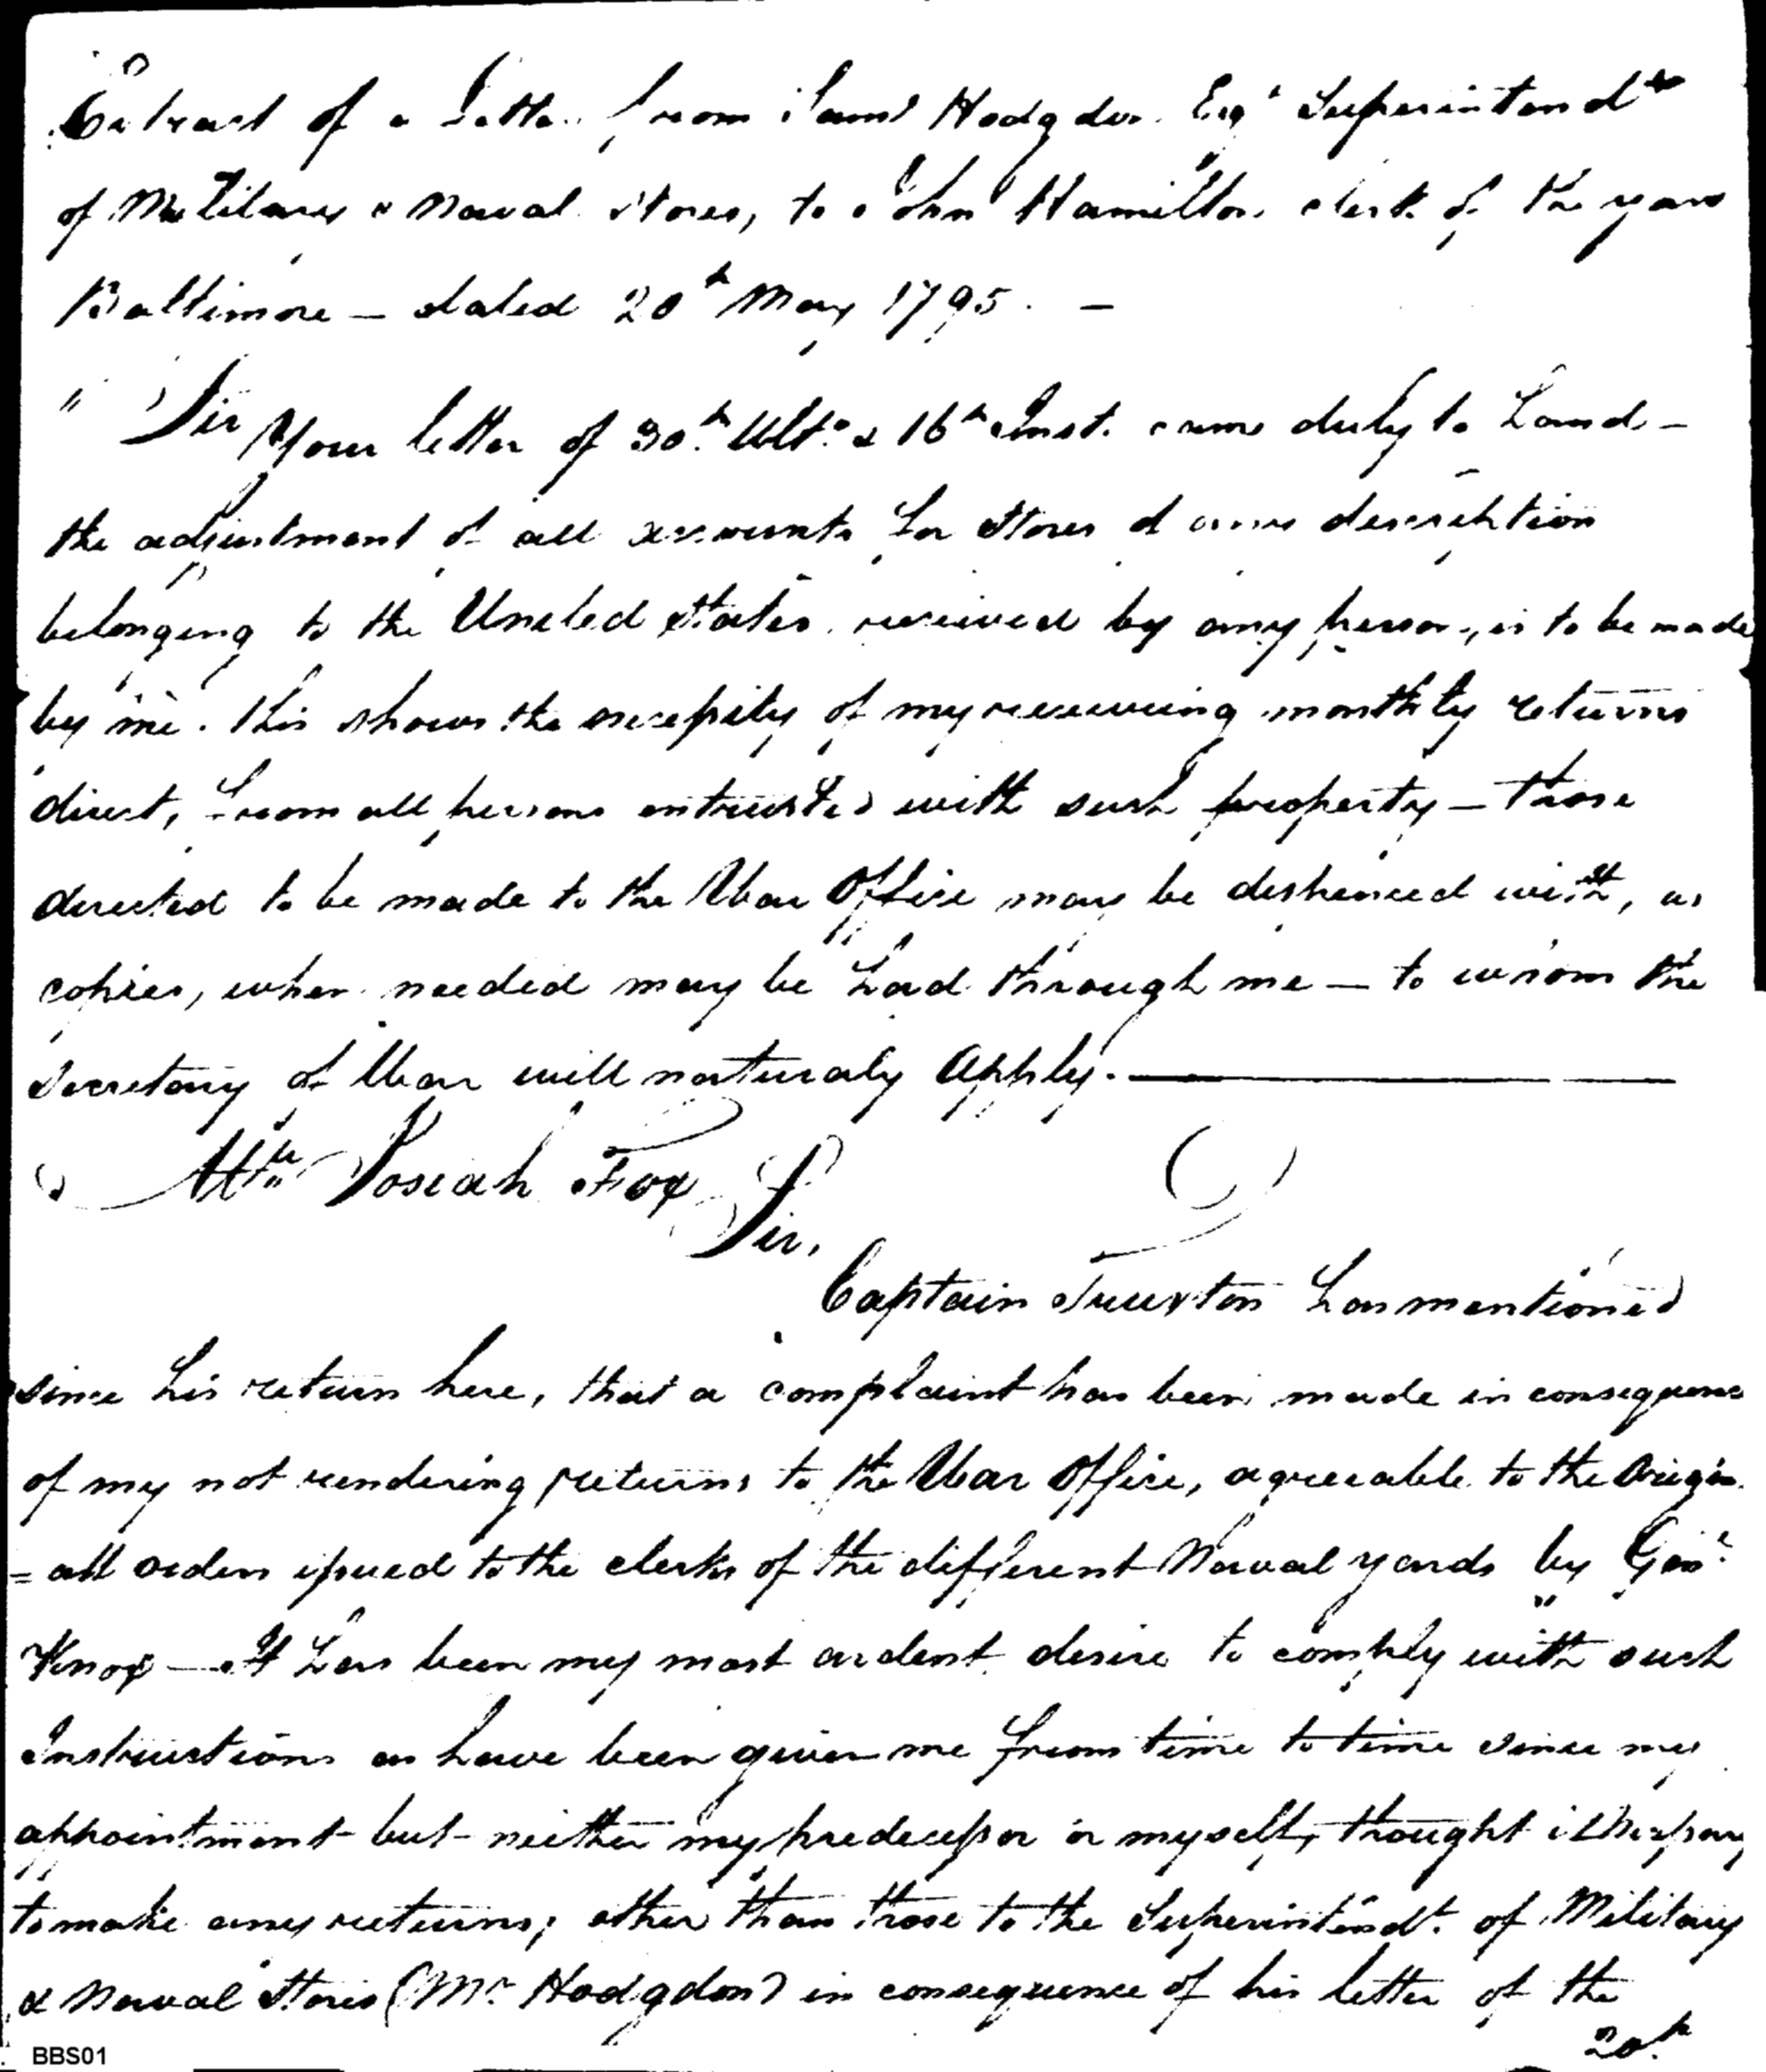 Extract of a Letter from Saml Hodgdon Esqr Superintendt
of Military & Naval Stores, to John Hamilton clerk of the yard
Baltimore — dated 20th May 1795. —
" Sir Your letter of 30th Ulto. & 16th Inst. came duly to hand —
the adjustment of all accounts for Stores of any description
belonging to the United States received by any person, is to be made
by me. this shows the necessity of my receiving monthly returns
direct, from all persons entrusted with such property — those
directed to be made to the War Office may be dispenced with, as
copies, when needed may be had through me — to whom the
Secretary of War will naturaly Apply. ———
Mr. Josiah Fox
Sir,
Captain Truxton has mentioned
since his return here, that a complaint has been made in consequence
of my not rendering returns to the War Office, agreeable to the Origin
= all orders issued to the clerks of the different Naval yards by Genl.
Knox — It has been my most ardent desire to comply with such
Instructions as have been given me from time to time since my
appointment but neither my predecessor or myself, thought it Necessary
to make any returns, other than those to the Superintendt. of Military
& Naval Stores (Mr. Hodgdon) in consequence of his letter of the
20th.
BBS01